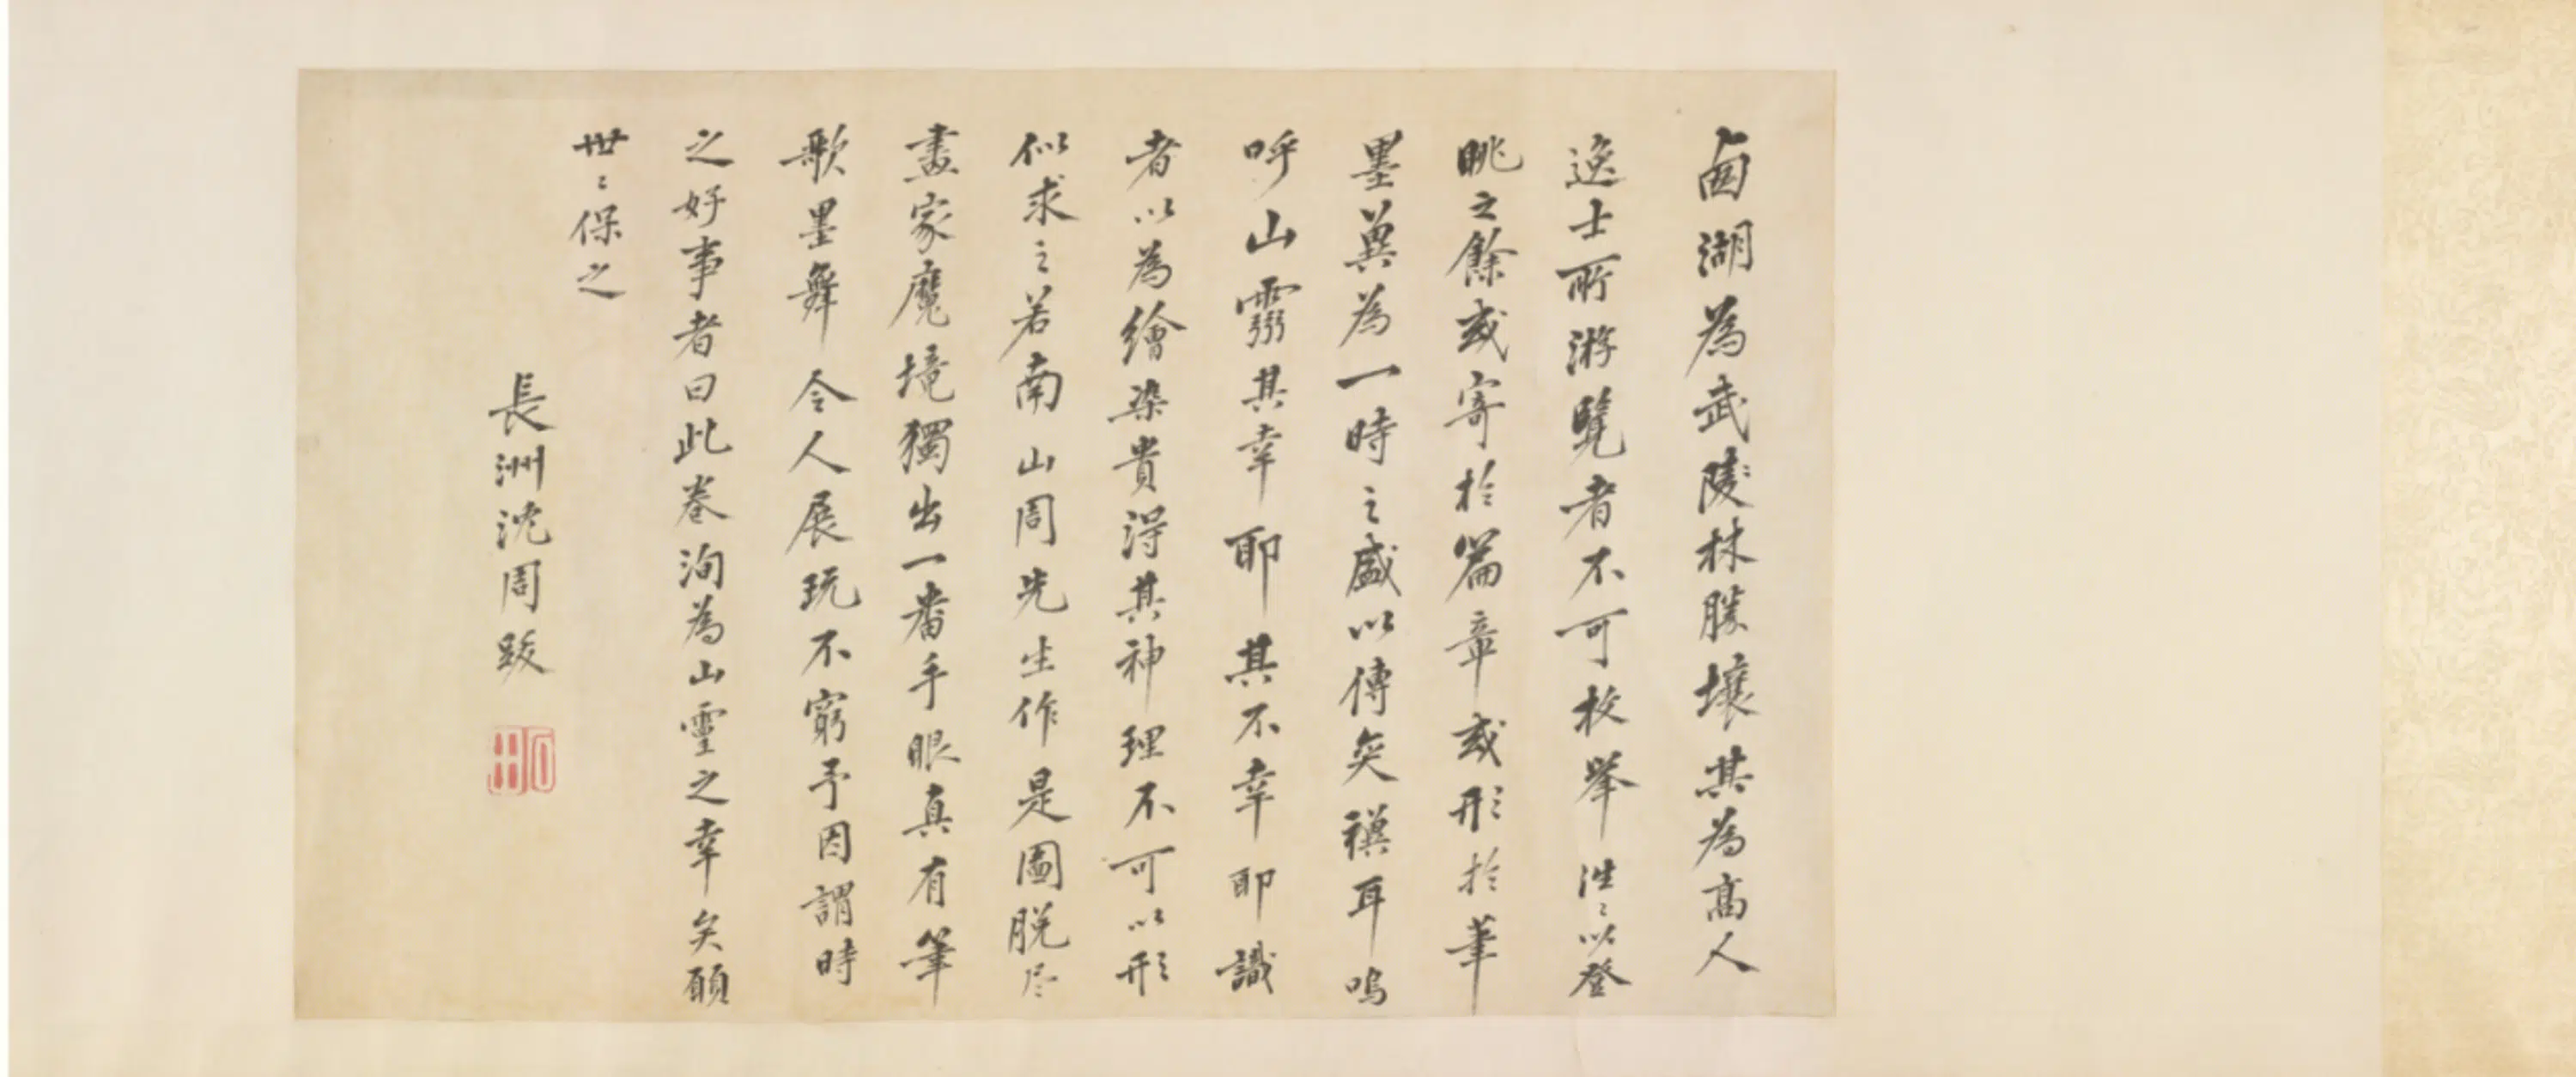 西湖為武陵林勝壤其為高人
逸士所游覽者不可枚舉往〻以登
眺之餘或寄於篇章或形於筆
墨冀為一時之盛以傳奕禩耳嗚
呼山靈其幸耶其不幸耶識
者以為繪染貴得其神理不可以形
似求之若南山周先生作是圖脫尽
畫家魔境獨出一番手眼真有筆
歌墨舞令人展玩不窮予因謂時
之好事者曰此卷洵為山靈之幸矣願
世〻保之
長洲沈周跋
石田